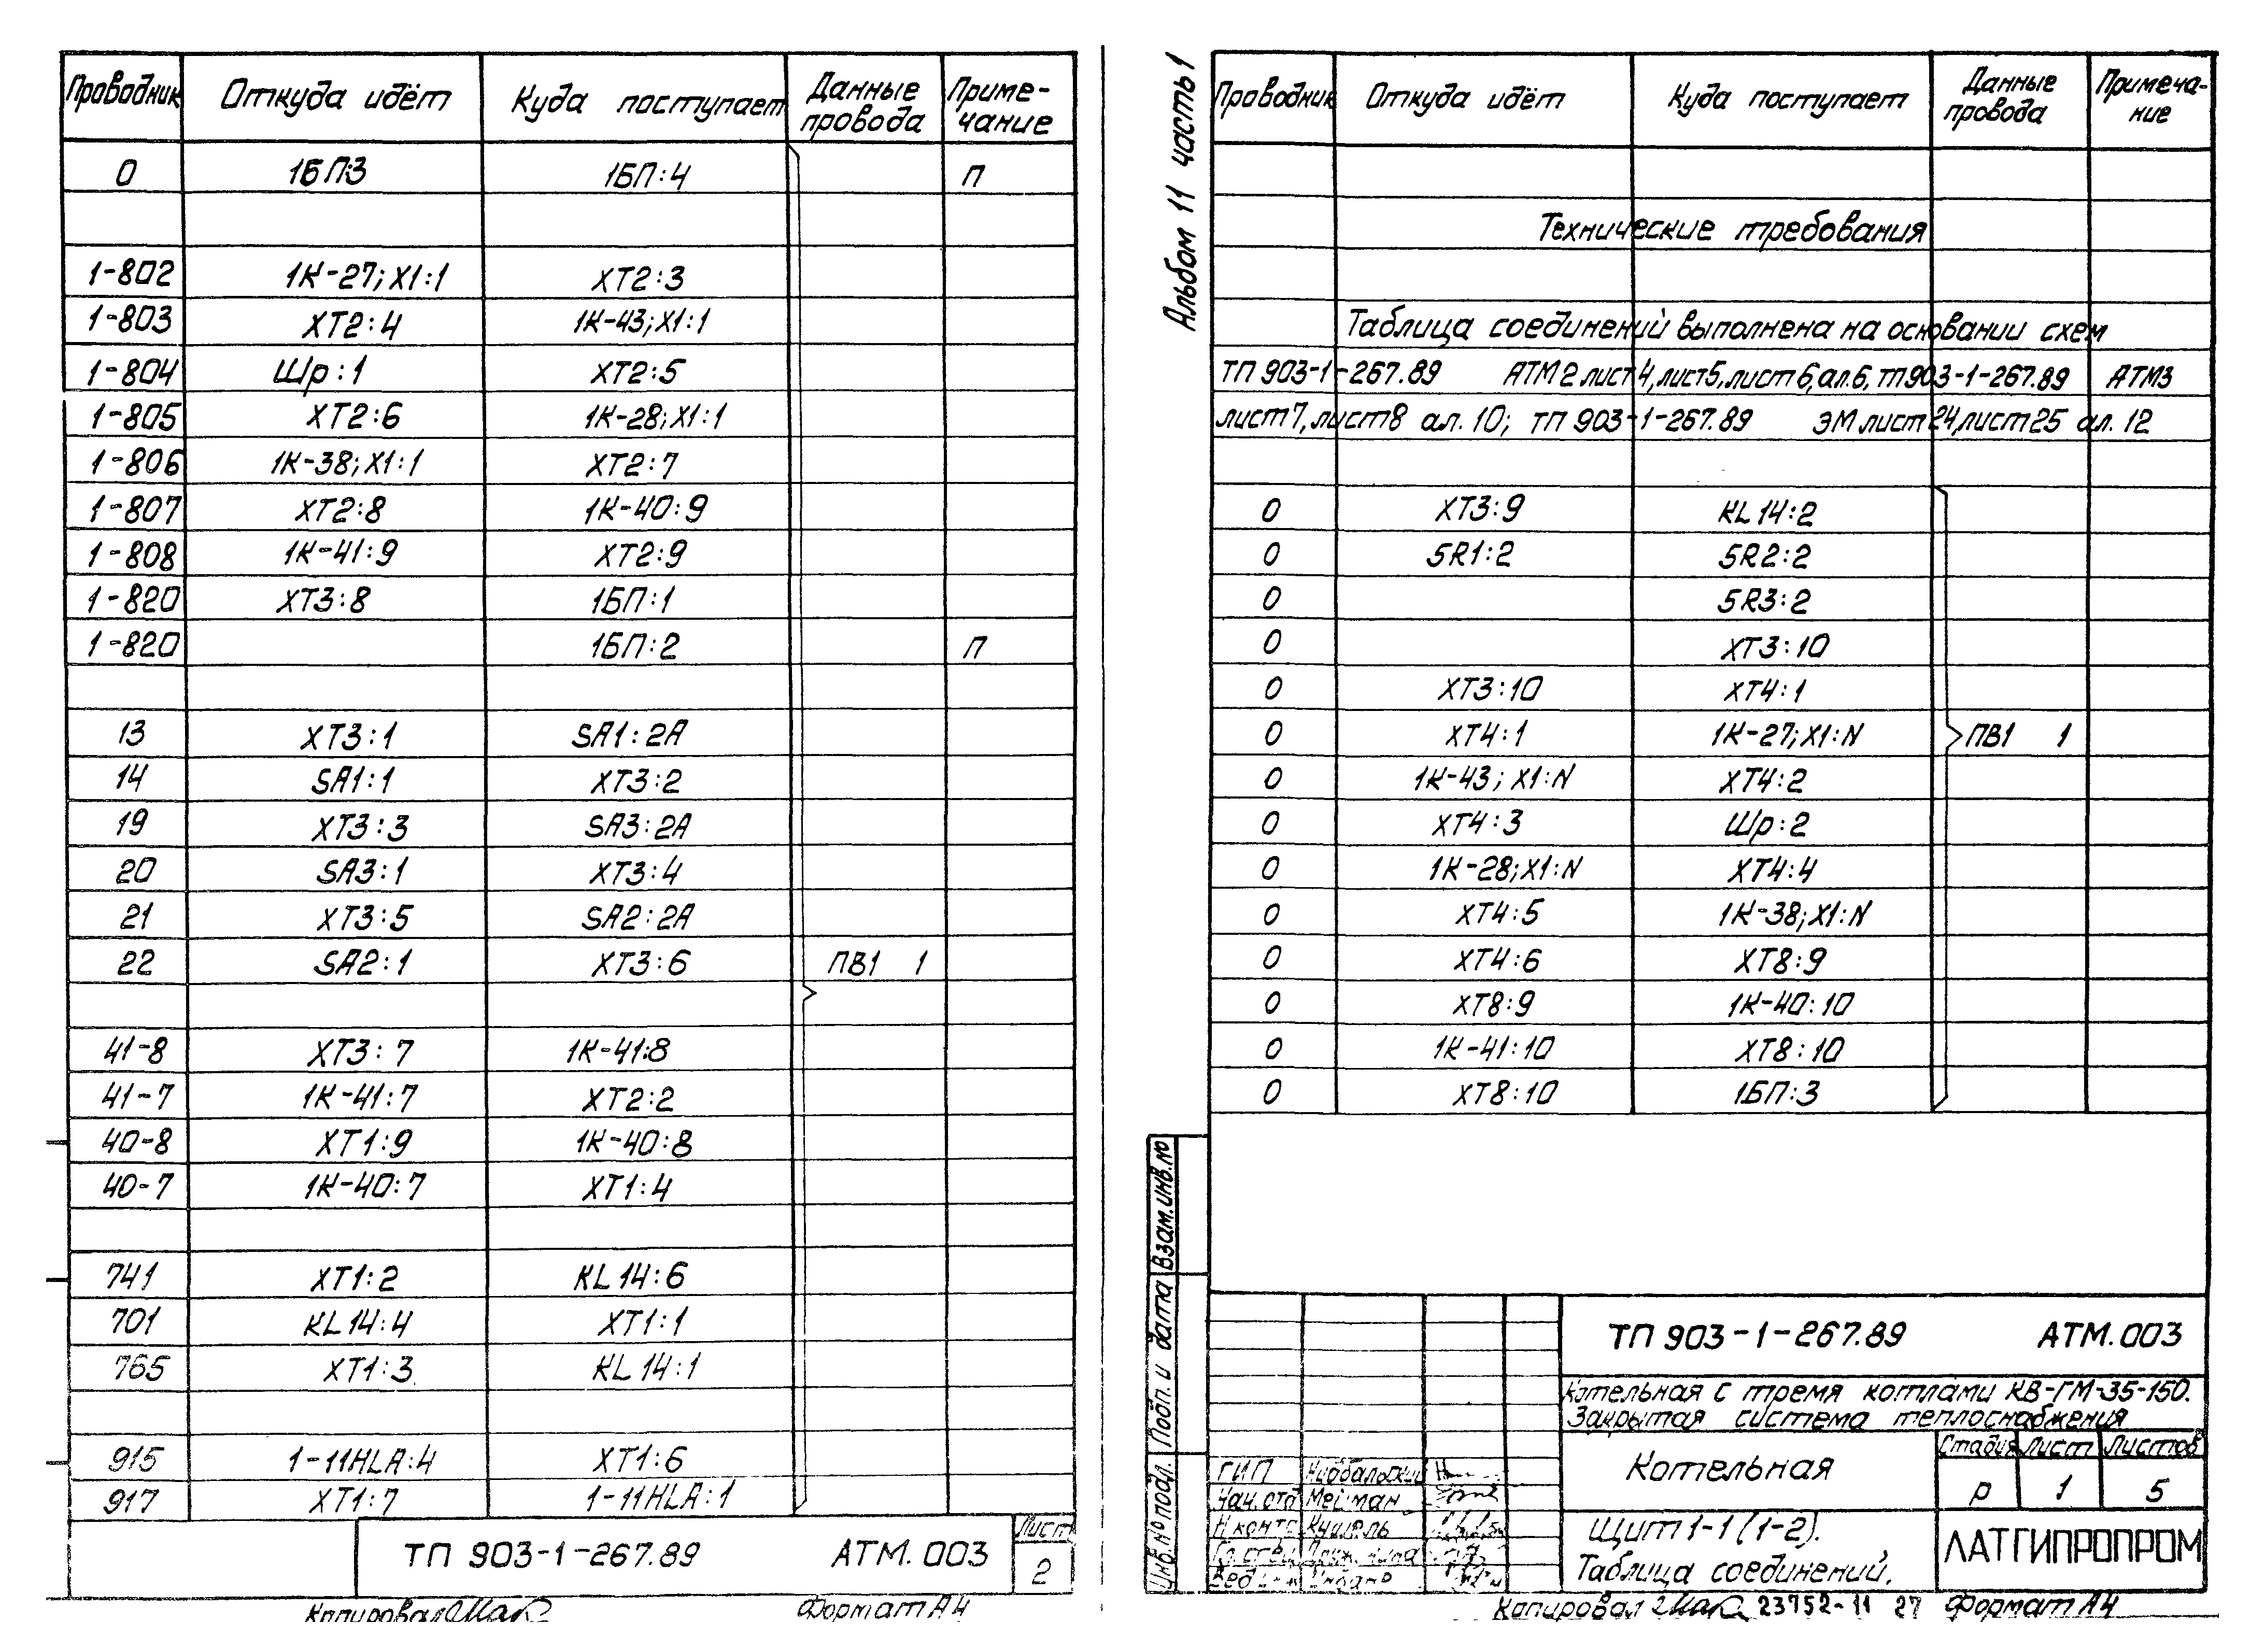 Проводник Откуда идёт Куда поступает Данные провода Приме-чание
0 1БП:3 1БП:4 П
1-802 1К-27; X1:1 XT2:3
1-803 XT2:4 1К-43; X1:1
1-804 Шр:1 XT2:5
1-805 XT2:6 1К-28; X1:1
1-806 1К-38; X1:1 XT2:7
1-807 XT2:8 1К-40:9
1-808 1К-41:9 XT2:9
1-820 XT3:8 1БП:1
1-820 1БП:2 П
13 XT3:1 SA1:2A
14 SA1:1 XT3:2
19 XT3:3 SA3:2A
20 SA3:1 XT3:4
21 XT3:5 SA2:2A
22 SA2:1 XT3:6 ПВ1 1
41-8 XT3:7 1К-41:8
41-7 1К-41:7 XT2:2
40-8 XT1:9 1К-40:8
40-7 1К-40:7 XT1:4
741 XT1:2 KL14:6
701 KL14:4 XT1:1
765 XT1:3 KL14:1
915 1-11HLA:4 XT1:6
917 XT1:7 1-11HLA:1
ТП 903-1-267.89 АТМ.003
Лист
2
Копировал
Формат А4
Альбом 11 часть 1
Проводник Откуда идёт Куда поступает Данные провода Примеча-ние
Технические требования
Таблица соединений выполнена на основании схем
ТП 903-1-267.89 АТМ2 лист 4, лист 5, лист 6, ал.6, тп 903-1-267.89 АТМ3
лист 7, лист 8 ал. 10; ТП 903-1-267.89 ЭМ лист 24, лист 25 ал. 12
0 XT3:9 KL14:2
0 5R1:2 5R2:2
0 5R3:2
0 XT3:10
0 XT3:10 XT4:1
0 XT4:1 1К-27; X1:N ПВ1 1
0 1К-43; X1:N XT4:2
0 XT4:3 Шр:2
0 1К-28; X1:N XT4:4
0 XT4:5 1К-38; X1:N
0 XT4:6 XT8:9
0 XT8:9 1К-40:10
0 1К-41:10 XT8:10
0 XT8:10 1БП:3
Взам.инв.№
Подп. и дата
Инв.№ подл.
ТП 903-1-267.89 АТМ.003
Котельная с тремя котлами КВ-ГМ-35-150.
Закрытая система теплоснабжения
Котельная
Стадия Лист Листов
Р 1 5
ГИП
Нач.отд Мейман
Н.контр
Щит 1-1 (1-2).
Таблица соединений.
ЛАТГИПРОПРОМ
Копировал 23752-11 27 Формат А4